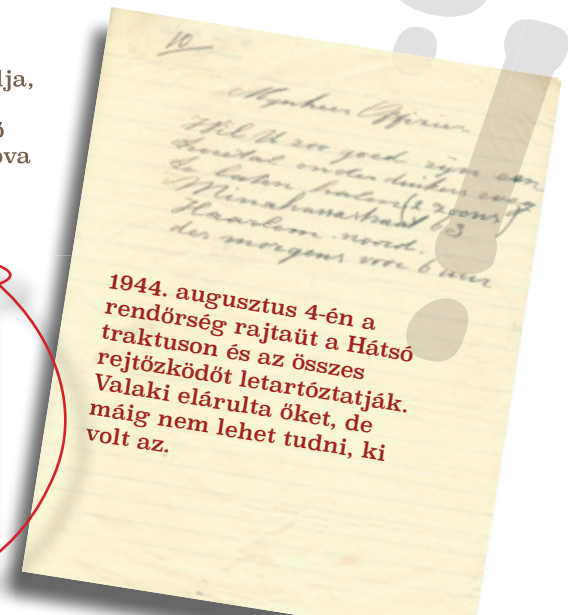 lja,
ova
10
Mynheer Officier
Wil U zoo goed zijn een
onderduikers
te laten halen (2 zoons)
Minahassastraat 63
Haarlem noord.
des morgens voor 6 uur
1944. augusztus 4-én a
rendőrség rajtaüt a Hátsó
traktuson és az összes
rejtőzködőt letartóztatják.
Valaki elárulta őket, de
máig nem lehet tudni, ki
volt az.